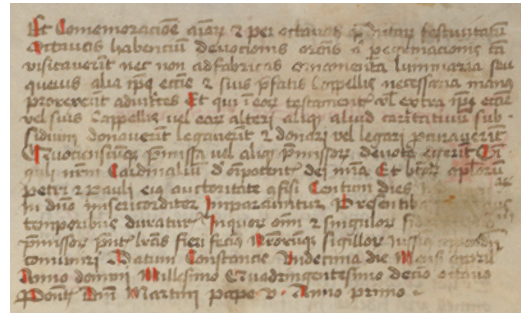 Et Comemoracione
octauas habenciu deuocionis oronis a peregrinacionis
visitauerit nec non ad fabricas ornamenta luminaria seu
queuis alia ipis ecclie & suis pfatis Cappellis necessaria manus
porrexerit adiutrices Et qui i eor testamentis vl extra ipis
vel suis Cappellis vel eor alteri aliqr aliud caritatiuu sub-
sidium donauerit legauerit & donari vel legari procurauerit
Quociescuqz pmissa vel aliqr pmissor deuote
quili nrm Cardinaliu d'oipotentis dei mia Et btor aplorum
petri & pauli eius auctoritate cofisi Centum dies
in dno misericorditer Impartimur Presentibus
temporibus duraturis In quor oim & singulor
pmissor pntes lras fieri fecimus Nrorumqz sigillor iussimus
comuniri Datum Constancie Vndecima die Mensis april
Anno domini Millesimo Quadringentesimo decio octauo
Pont dni Martini pape v Anno primo